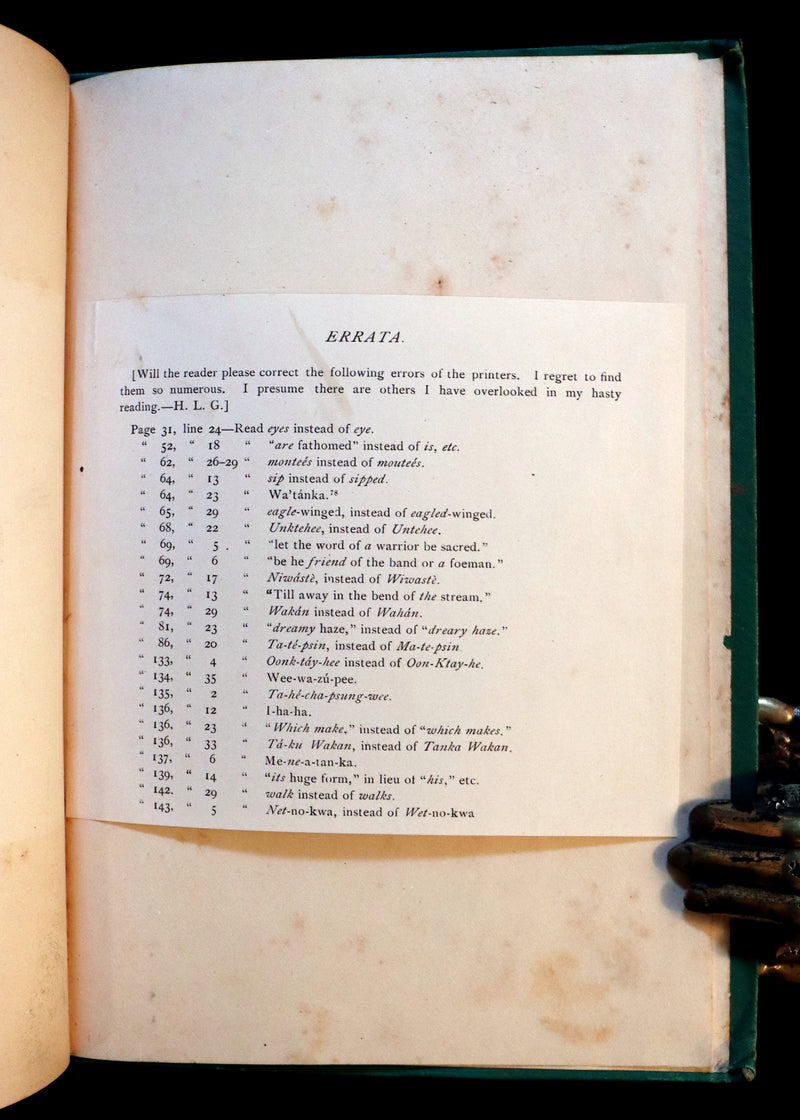 ERRATA.
[Will the reader please correct the following errors of the printers. I regret to find
them so numerous. I presume there are others I have overlooked in my hasty
reading.—H. L. G.]
Page 31, line 24—Read eyes instead of eye.
“ 52, “ 18 “ “are fathomed” instead of is, etc.
“ 62, “ 26–29 “ monteés instead of mouteés.
“ 64, “ 13 “ sip instead of sipped.
“ 64, “ 23 “ Wa’tánka.⁷⁸
“ 65, “ 29 “ eagle-winged, instead of eagled-winged.
“ 68, “ 22 “ Unktehee, instead of Untehee.
“ 69, “ 5 . “ “let the word of a warrior be sacred.”
“ 69, “ 6 “ “be he friend of the band or a foeman.”
“ 72, “ 17 “ Niwástè, instead of Wiwastè.
“ 74, “ 13 “ “Till away in the bend of the stream.”
“ 74, “ 29 “ Wakán instead of Wahán.
“ 81, “ 23 “ “dreamy haze,” instead of “dreary haze.”
“ 86, “ 20 “ Ta-té-psin, instead of Ma-te-psin
“ 133, “ 4 “ Oonk-táy-hee instead of Oon-Ktay-he.
“ 134, “ 35 “ Wee-wa-zú-pee.
“ 135, “ 2 “ Ta-hé-cha-psung-wee.
“ 136, “ 12 “ I-ha-ha.
“ 136, “ 23 “ “Which make,” instead of “which makes.”
“ 136, “ 33 “ Tá-ku Wakan, instead of Tanka Wakan.
“ 137, “ 6 “ Me-ne-a-tan-ka.
“ 139, “ 14 “ “its huge form,” in lieu of “his,” etc.
“ 142. “ 29 “ walk instead of walks.
“ 143. “ 5 “ Net-no-kwa, instead of Wet-no-kwa